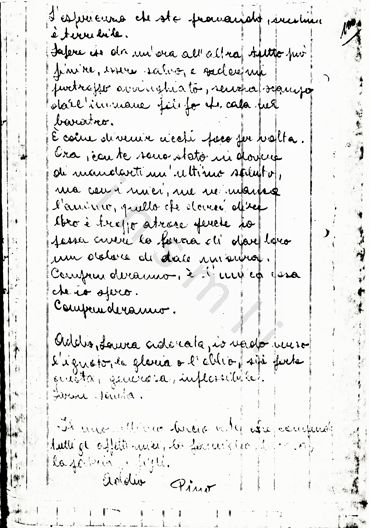 L'esperienza che sto provando, credimi
è terribile.
Sapere che da un'ora all'altra tutto può
finire, essere salvo, e vedermi
purtroppo avvinghiato, senza scampo
dall'immane fa che cala nel
baratro.
È come divenir ciechi poco per volta.
Ora, con te sono stato in dovere
di mandarti un'ultimo saluto,
ma con i miei, me ne manca
l'animo, quello che dovrei dire
loro è troppo atroce perchè io
possa avere la forza di dar loro
un dolore di tale misura.
Comprenderanno, è l'unica cosa
che io spero.
Comprenderanno.
Addio, Laura adorata, io vado verso
l'ignoto, la gloria o l'oblio, sii forte
onesta, generosa, inflessibile.
Laura santa.
Il mio ultimo bacio a te che comprendi
tutti gli affetti miei, la famiglia
la patria, i figli.
Addio Pino